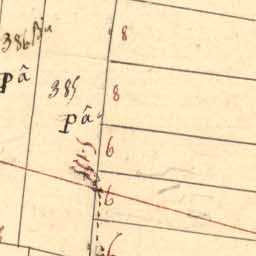 8
386
pâ
385
8
pâ
6
6
6